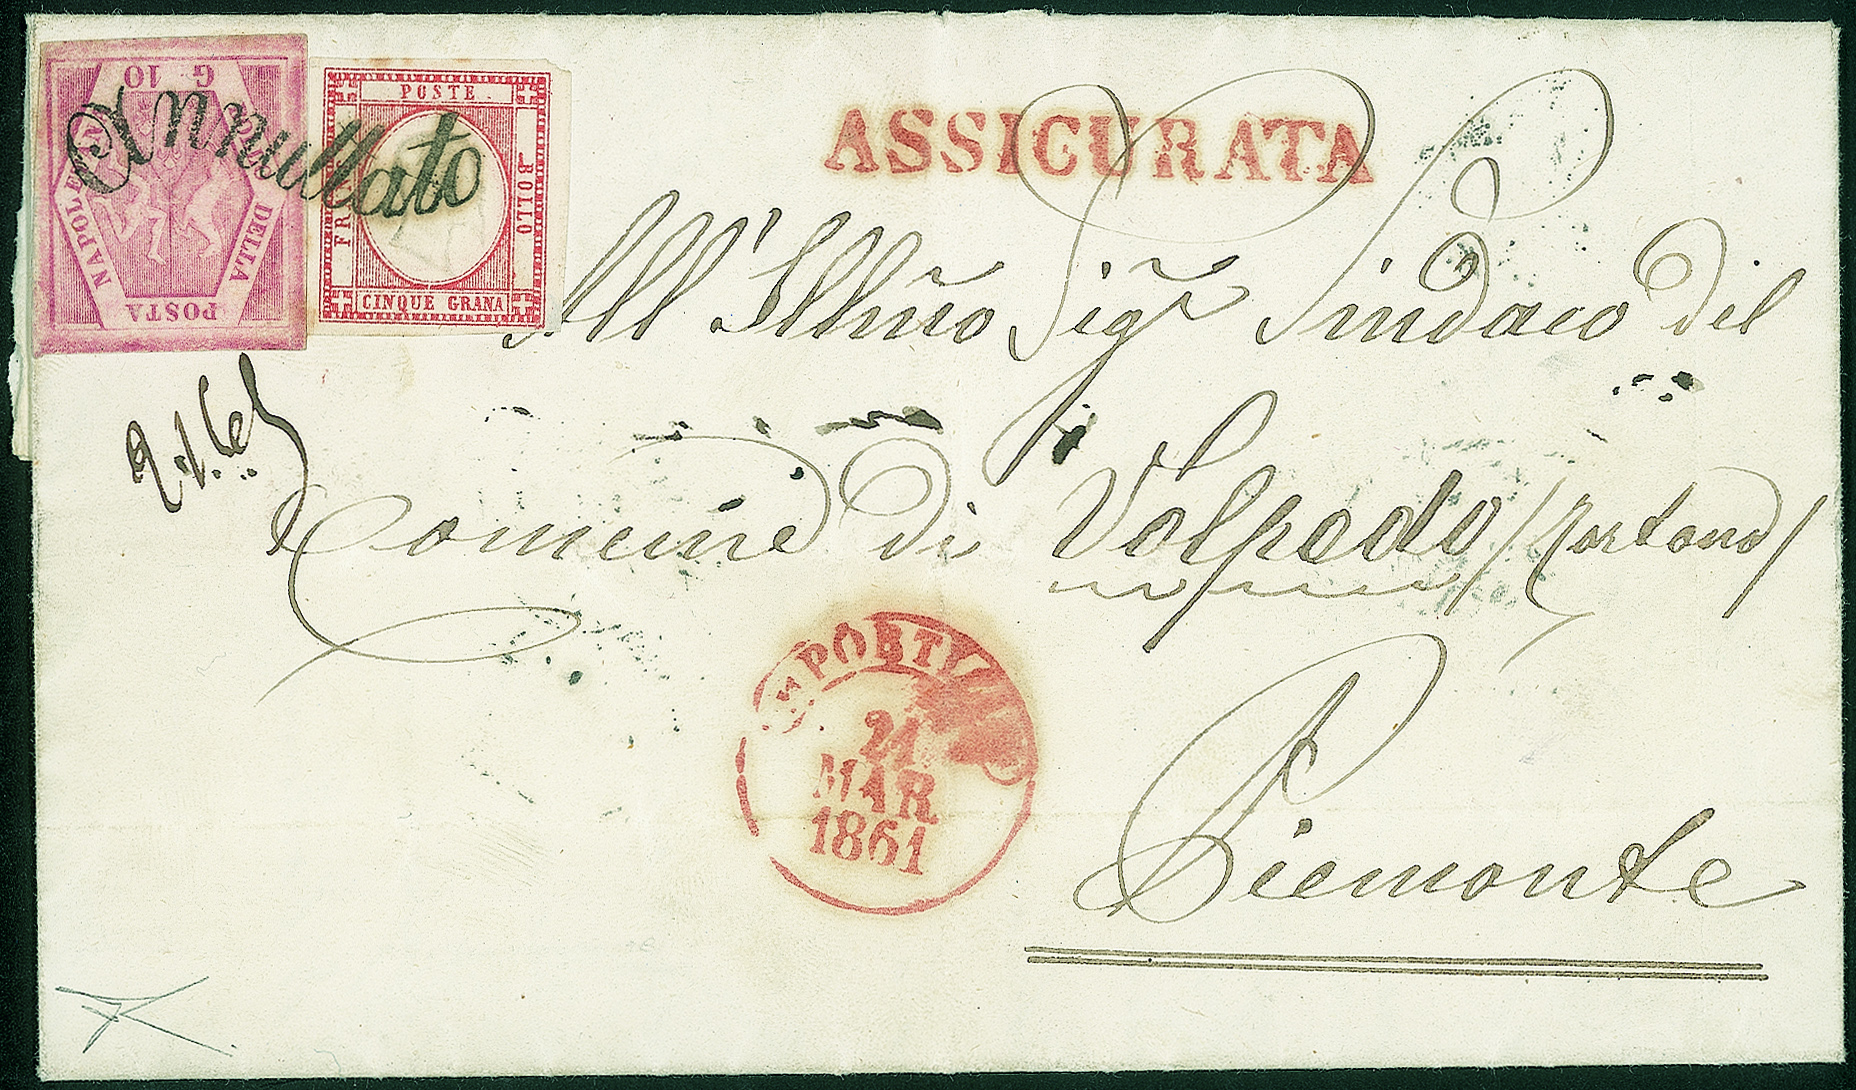 G 10
BOLLO DELLA POSTA NAPOLETANA
POSTE
FRANCO BOLLO
CINQUE GRANA
Annullato
ASSICURATA
All'Illmo Sigr Sindaco del
Comune di Volpedo (Tortona)
Piemonte
21
MAR
1861